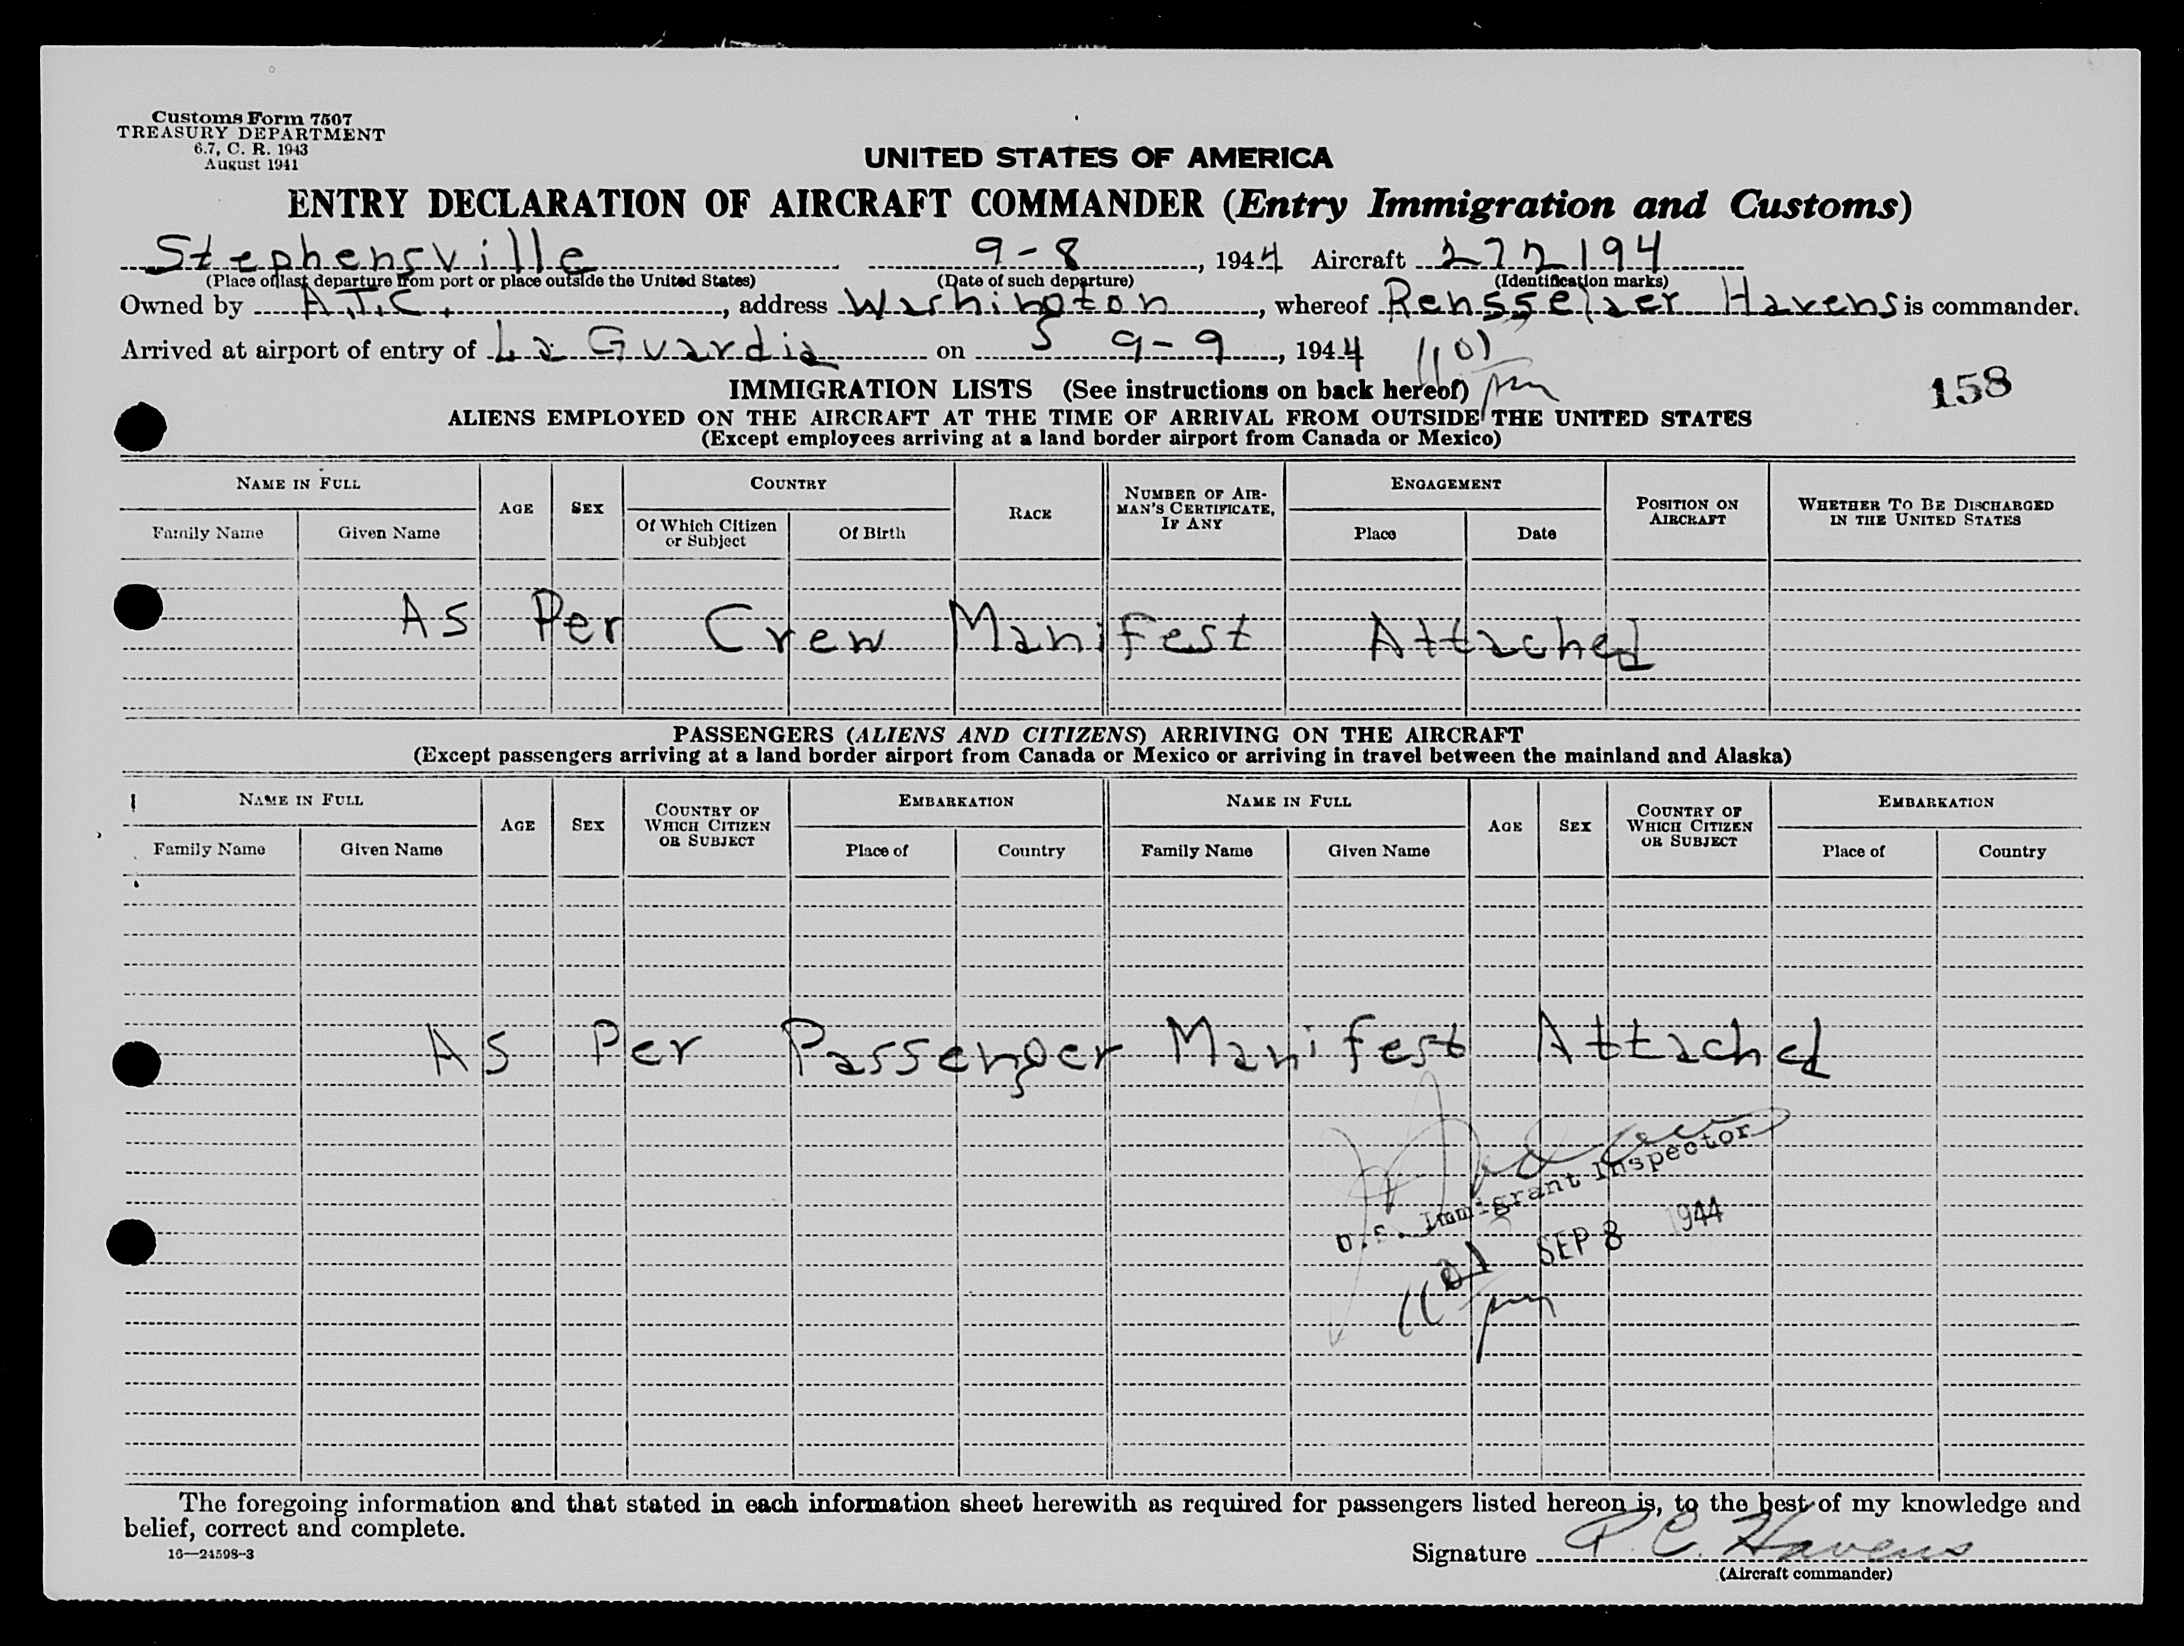 Customs Form 7507
TREASURY DEPARTMENT
6.7, C. R. 1943
August 1941
UNITED STATES OF AMERICA
ENTRY DECLARATION OF AIRCRAFT COMMANDER (Entry Immigration and Customs)
Stephensville 9-8, 1944 Aircraft 272194
(Place of last departure from port or place outside the United States) (Date of such departure) (Identification marks)
Owned by A.T.C., address Washington, whereof Rensselaer Havens is commander.
Arrived at airport of entry of La Guardia on 9-9, 1944 1101 pm
IMMIGRATION LISTS (See instructions on back hereof)
158
ALIENS EMPLOYED ON THE AIRCRAFT AT THE TIME OF ARRIVAL FROM OUTSIDE THE UNITED STATES
(Except employees arriving at a land border airport from Canada or Mexico)
NAME IN FULL AGE SEX COUNTRY RACE NUMBER OF AIRMAN'S CERTIFICATE, IF ANY ENGAGEMENT POSITION ON AIRCRAFT WHETHER TO BE DISCHARGED IN THE UNITED STATES
Family Name Given Name Of Which Citizen or Subject Of Birth Place Date
As Per Crew Manifest Attached
PASSENGERS (ALIENS AND CITIZENS) ARRIVING ON THE AIRCRAFT
(Except passengers arriving at a land border airport from Canada or Mexico or arriving in travel between the mainland and Alaska)
NAME IN FULL AGE SEX COUNTRY OF WHICH CITIZEN OR SUBJECT EMBARKATION NAME IN FULL AGE SEX COUNTRY OF WHICH CITIZEN OR SUBJECT EMBARKATION
Family Name Given Name Place of Country Family Name Given Name Place of Country
As Per Passenger Manifest Attached
U.S. Immigrant Inspector
SEP 8 1944
1101 pm
The foregoing information and that stated in each information sheet herewith as required for passengers listed hereon is, to the best of my knowledge and
belief, correct and complete.
16—24598-3
Signature R. C. Havens
(Aircraft commander)